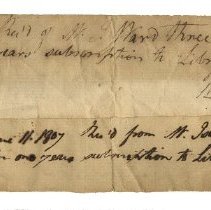 Rec'd of Mr. Ward three
years subscription to Libr
11. 1807 Rec'd from M. Jo
on one years subscription to Li